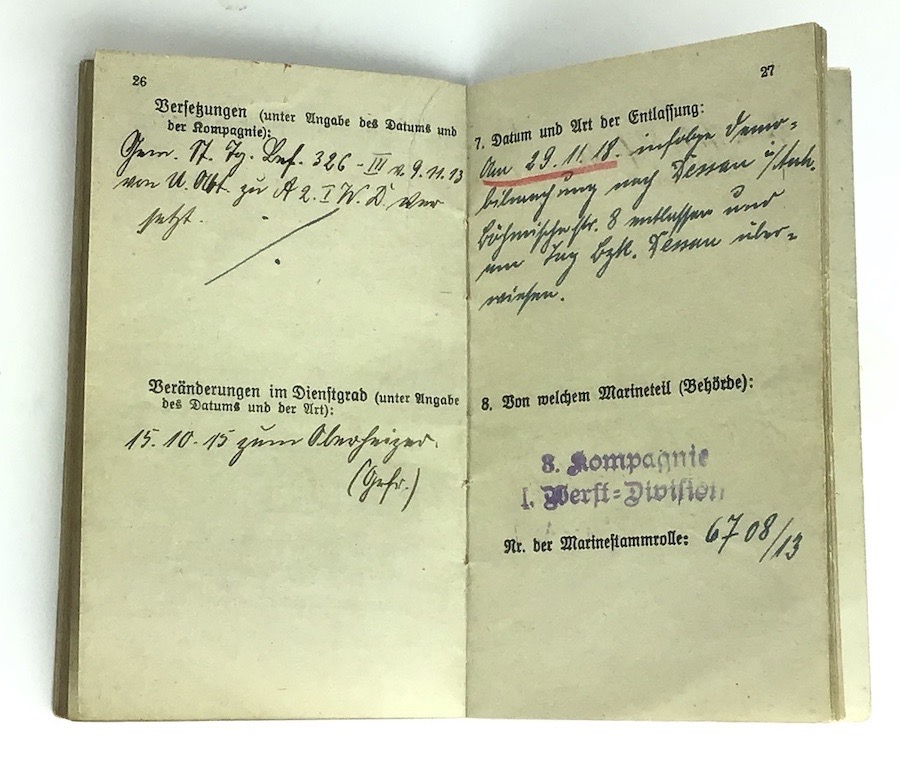 26
Versetzungen (unter Angabe des Datums und
der Kompagnie):
Gem. St. Tg. Bef. 326 - III v. 9.11.13
von U. Abt. zu A 2. I W. D. ver
setzt.
Veränderungen im Dienstgrad (unter Angabe
des Datums und der Art):
15. 10. 15 zum Oberheizer.
(Gefr.)
27
7. Datum und Art der Entlassung:
Am 29. 11. 18. infolge Demo-
bilmachung nach Dessau i/Anh.
Böhmischestr. 8 entlassen und
am Tag Bzk. Dessau über-
wiesen.
8. Von welchem Marineteil (Behörde):
8. Kompagnie
I. Werft-Division
Nr. der Marinestammrolle: 6708/13